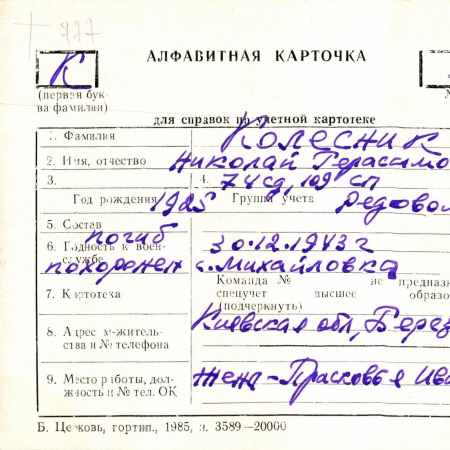 777
К
АЛФАВИТНАЯ КАРТОЧКА
(первая бук-
ва фамилии)
для справок по учетной картотеке
1. Фамилия Колесник
2. Имя, отчество Николай Герасимо
3. 4. 74 сд, 109 сп
Год рождения 1925 Группа учета рядовой
5. Состав погиб
6. Годность к воен- 30.12.1943 г
ной службе похоронен с. Михайловка
Команда № не предназ
7. Картотека спецучет высшее образо
(подчеркнуть)
Киевская обл, Берез
8. Адрес м-житель-
ства и № телефона
9. Место работы, дол- жена - Прасковья Ива
жность и № тел. ОК
Б. Церковь, гортип., 1985, з. 3589—20000